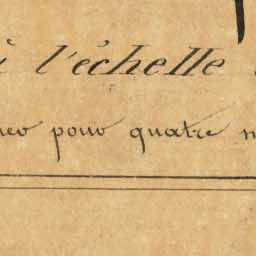 à l'échelle
pour quatre